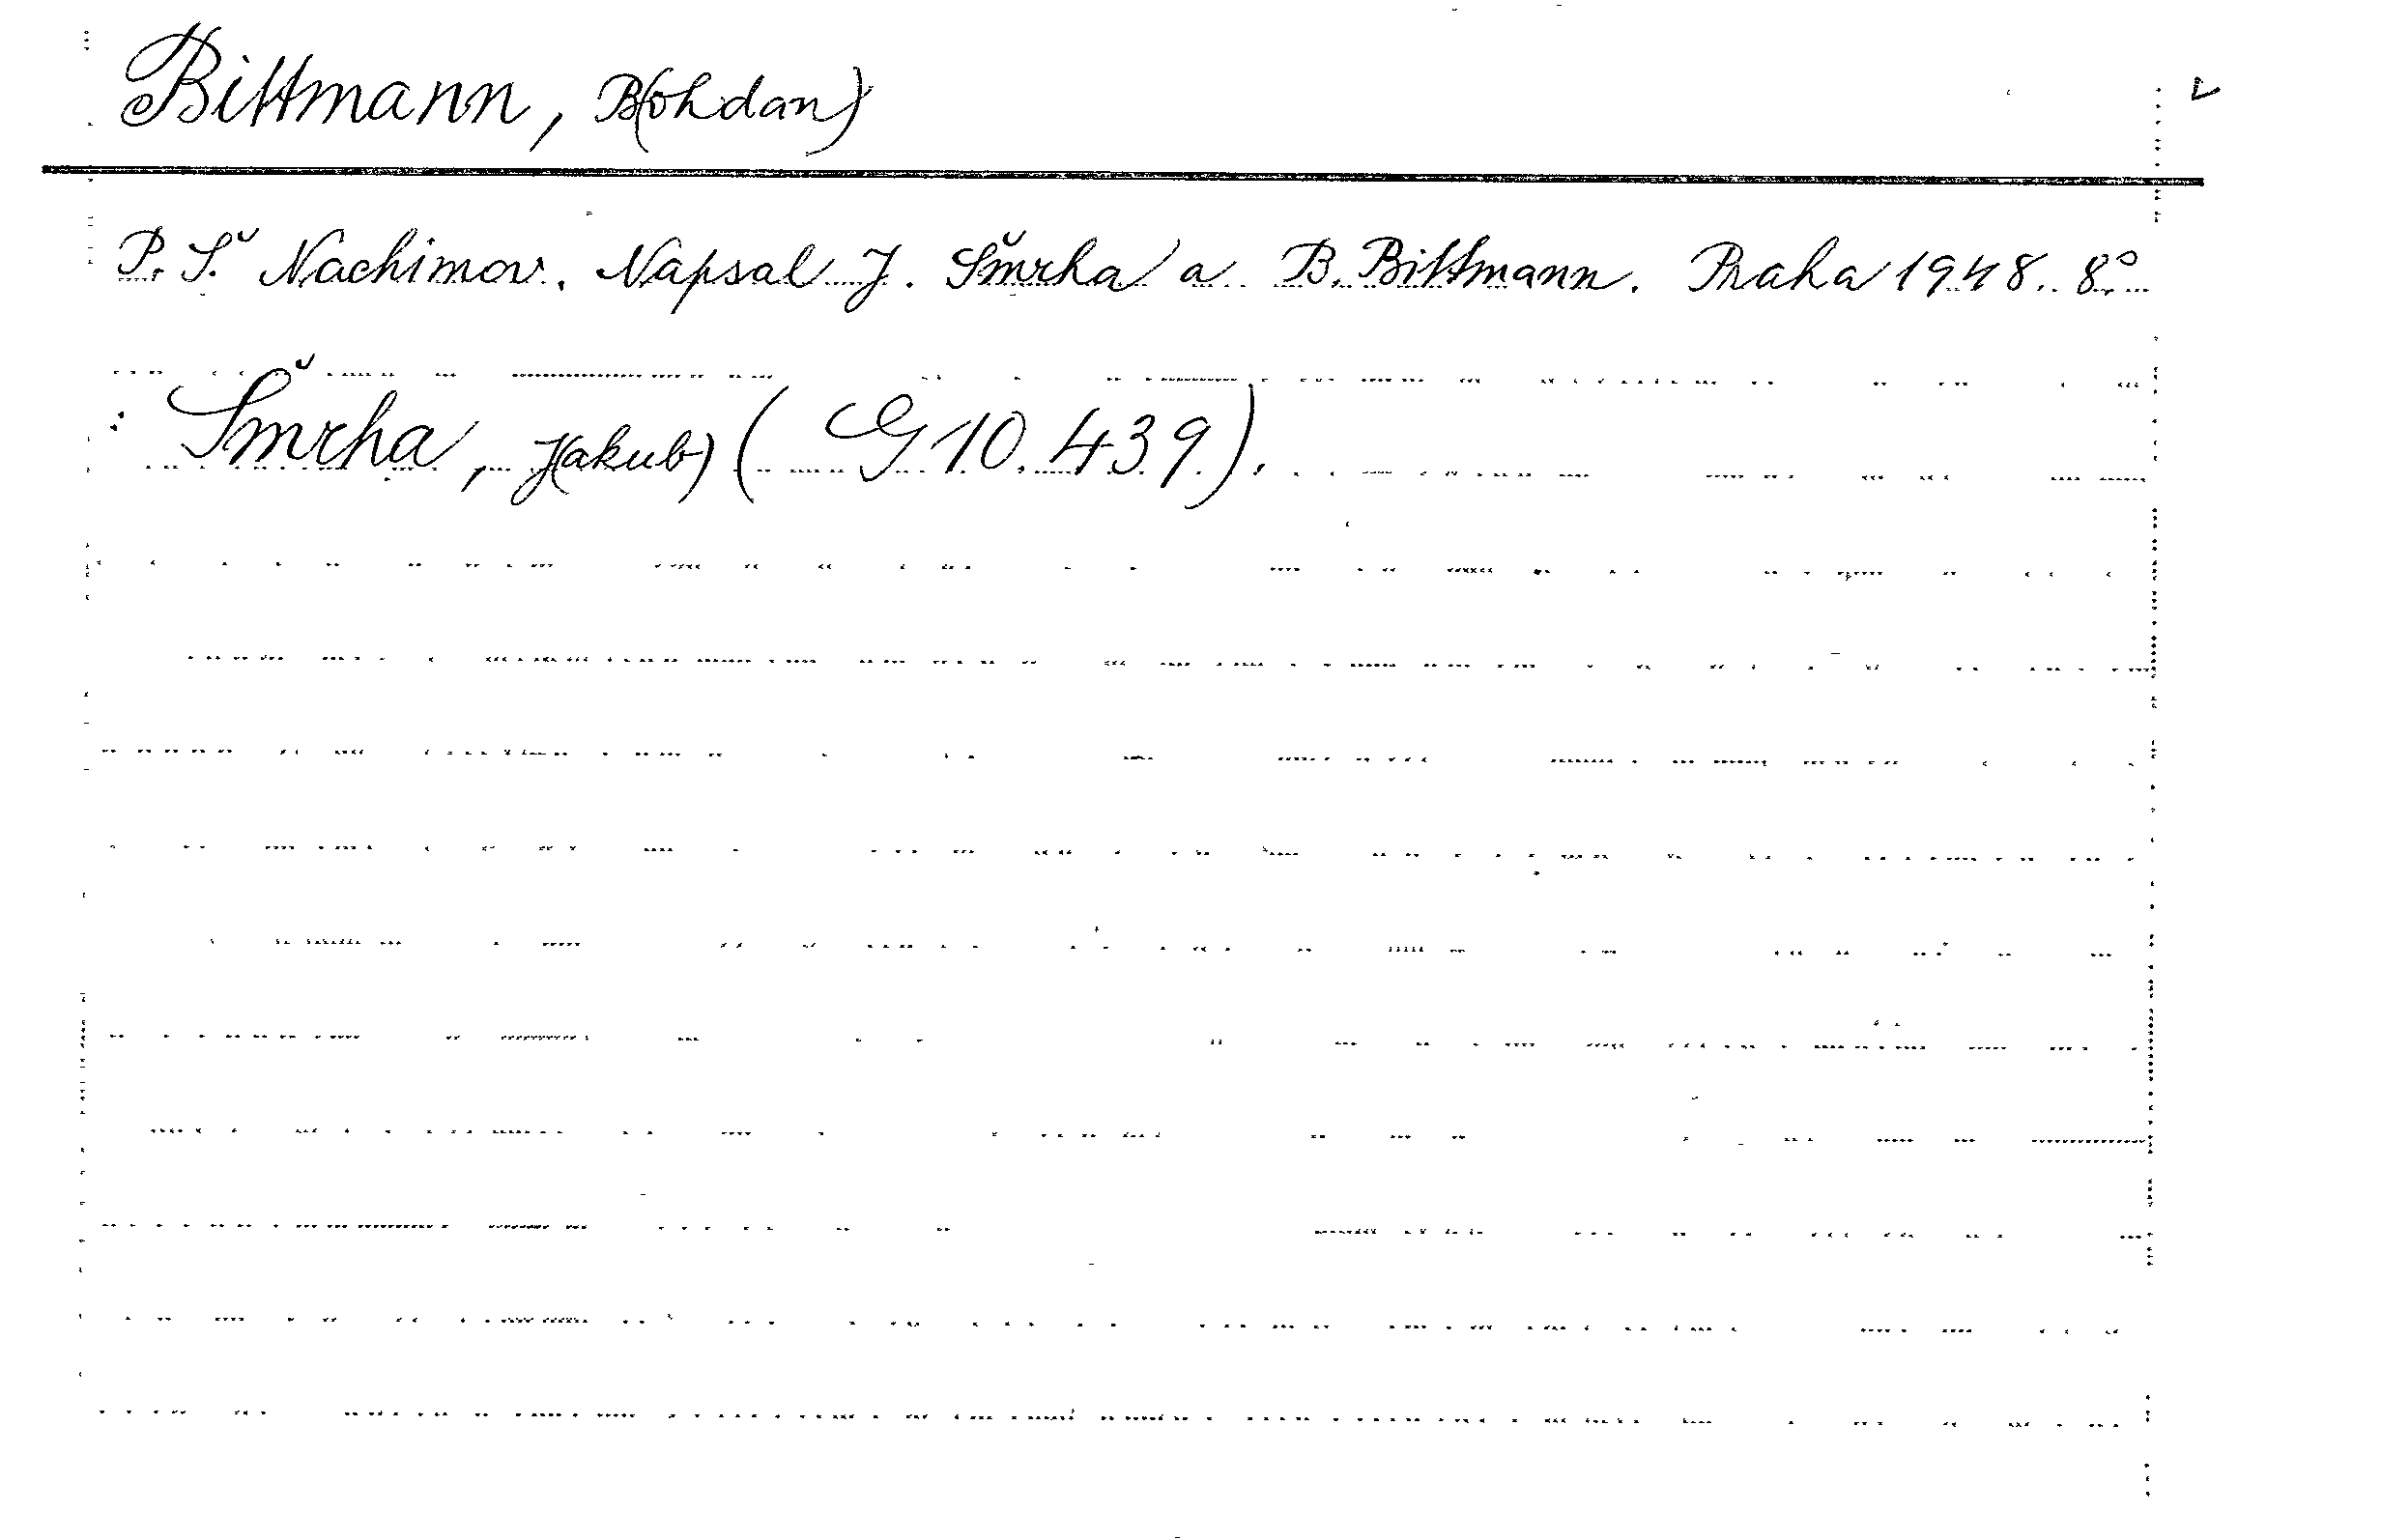 Bittmann, B(ohdan)
P. S. Nachimov. Napsal J. Šmrha a B. Bittmann. Praha 1948. 8°
: Šmrha, J(akub) ( G 10.439).